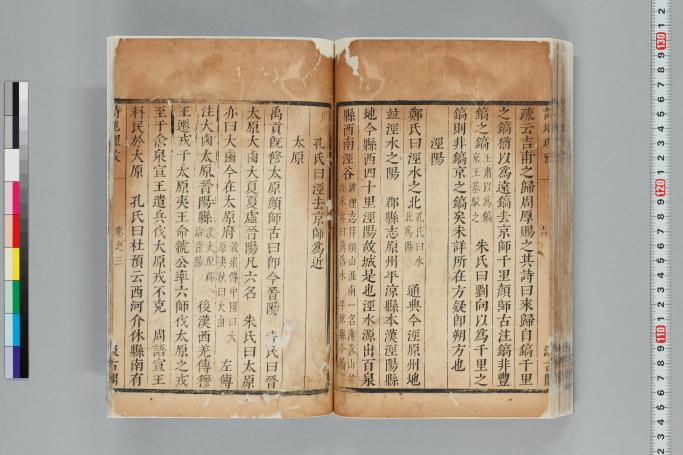 疏云吉甫之歸周厚賜之其詩曰來歸自鎬千里
之鎬猶以爲遠鎬去京師千里顏師古注鎬非豐
鎬之鎬王肅以爲鎬京王基駁之 朱氏曰劉向以爲千里之
鎬則非鎬京之鎬矣未詳所在方疑卽朔方也
涇陽
鄭氏曰涇水之北孔氏曰水北爲陽 通典今涇原州地
竝涇水之陽 郡縣志原州平涼縣本漢涇陽縣
地今縣西四十里涇陽故城是也涇水源出百泉
縣西南涇谷
孔氏曰涇去京師爲近
太原
禹貢旣修太原顏師古曰卽今晉陽 許氏曰晉
太原大鹵大夏夏虛晉陽凡六名 朱氏曰太原
亦曰大鹵今在太原府 左傳
注大鹵太原晉陽縣 後漢西羌傳穆
王遷戎于太原夷王命虢公率六師伐太原之戎
至于兪泉宣王遣兵伐大原戎不克 周語宣王
料民於大原 孔氏曰杜預云西河介休縣南有
卷之三
汲古閣